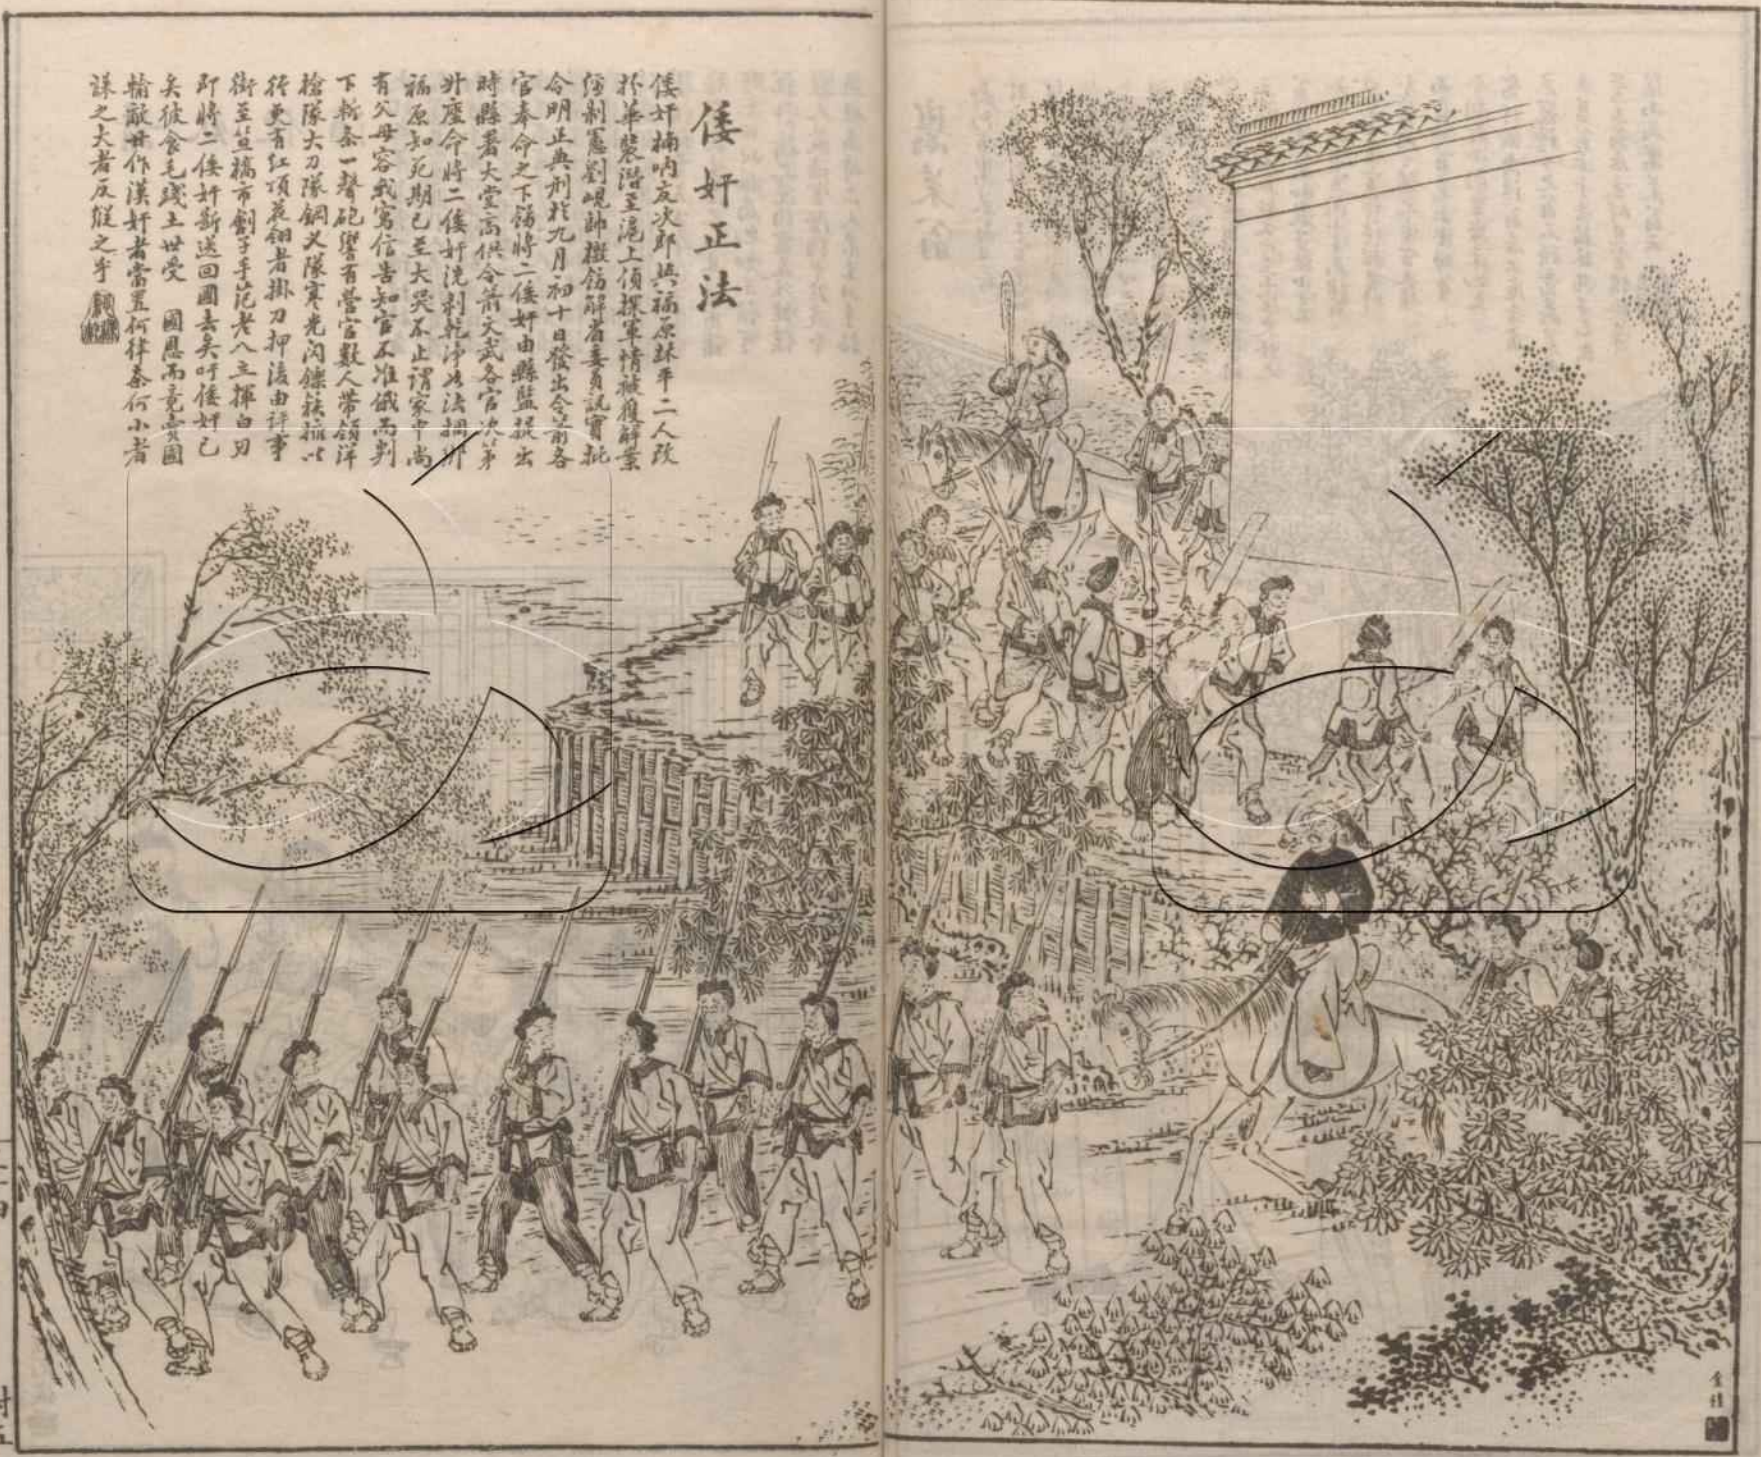 倭奸正法
倭奸楠內友次郎與福原林平二人改
扮華裝潛至滬上偵探軍情被獲解案
經制憲劉峴帥檄飭解省委員訊實批
令明正典刑於九月初十日發出令箭各
官奉命之下飭將二倭奸由縣監提出
時縣署大堂高供令箭文武各官次第
升座命將二倭奸洗剝乾淨如法捆綁
福原知死期已至大哭不止謂家中尚
有父母容我寫信告知官不准俄而判
下斬條一聲砲響有營官數人帶領洋
槍隊大刀隊鋼叉隊寒光閃鑠簇擁以
行更有紅頂花翎者掛刀押後由評事
街至笪橋市劊子手范老八立揮白刃
即將二倭奸斷送回國去矣吁倭奸已
矣彼食毛踐土世受 國恩而竟賣國
輸敵毋作漢奸者當置何律奈何小者
誅之大者反縱之乎